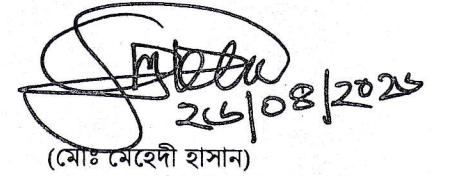 ২৬/০৪/২০২৬
(মোঃ মেহেদী হাসান)